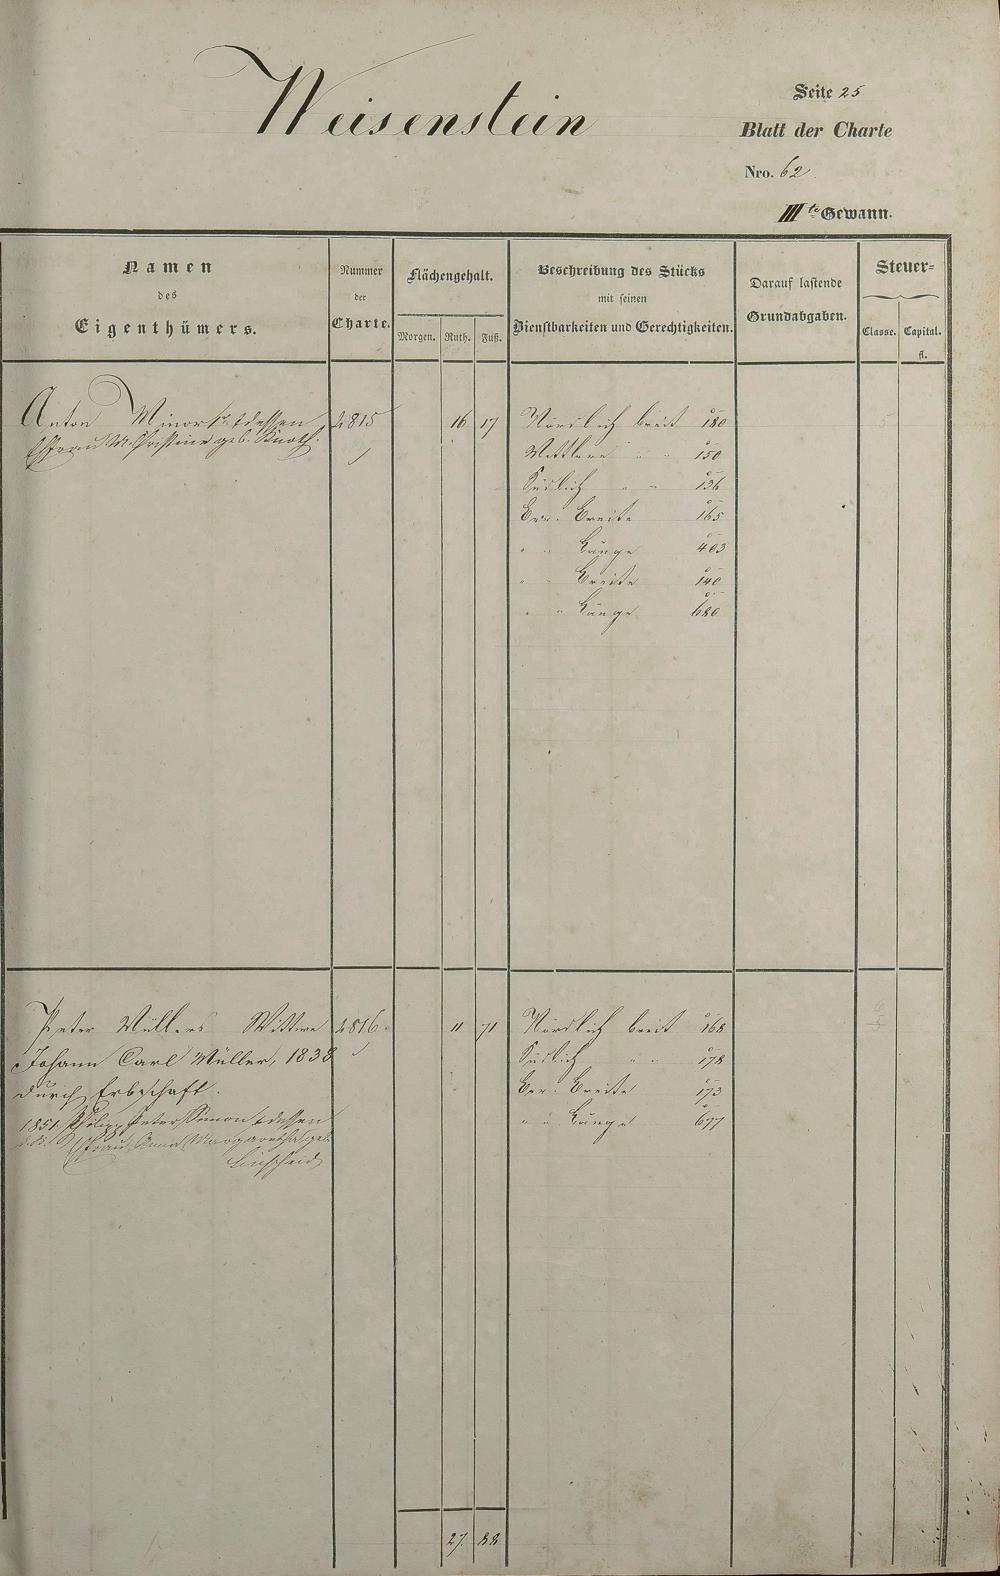 Weisenstein
Seite 25
Blatt der Charte
Nro. 62
III te Gewann.
Namen
des
Eigenthümers.
Nummer
der
Charte.
Flächengehalt.
Morgen. Ruth. Fuß.
Beschreibung des Stücks
mit seinen
Dienstbarkeiten und Gerechtigkeiten.
Darauf lastende
Grundabgaben.
Steuer-
Classe. Capital.
fl.
Anton Minor & dessen 2815 16 17 Nördlich breit 180
Ehefrau M. Christine geb. Knoth.
Mittlere " " 150
Südlich " " 136
Ver. Breite 165
" " Länge 403
" " Breite 140
" " Länge 680
Peter Müllers Wittwe 2816. 11 71 Nördlich breit 168
Johann Carl Müller, 1838 Südlich " " 178
durch Erbschaft. Ver. Breite 173
1851 Philipp Peter Simon & dessen " " Länge 677
Ehefrau Anna Margaretha geb.
27. 88